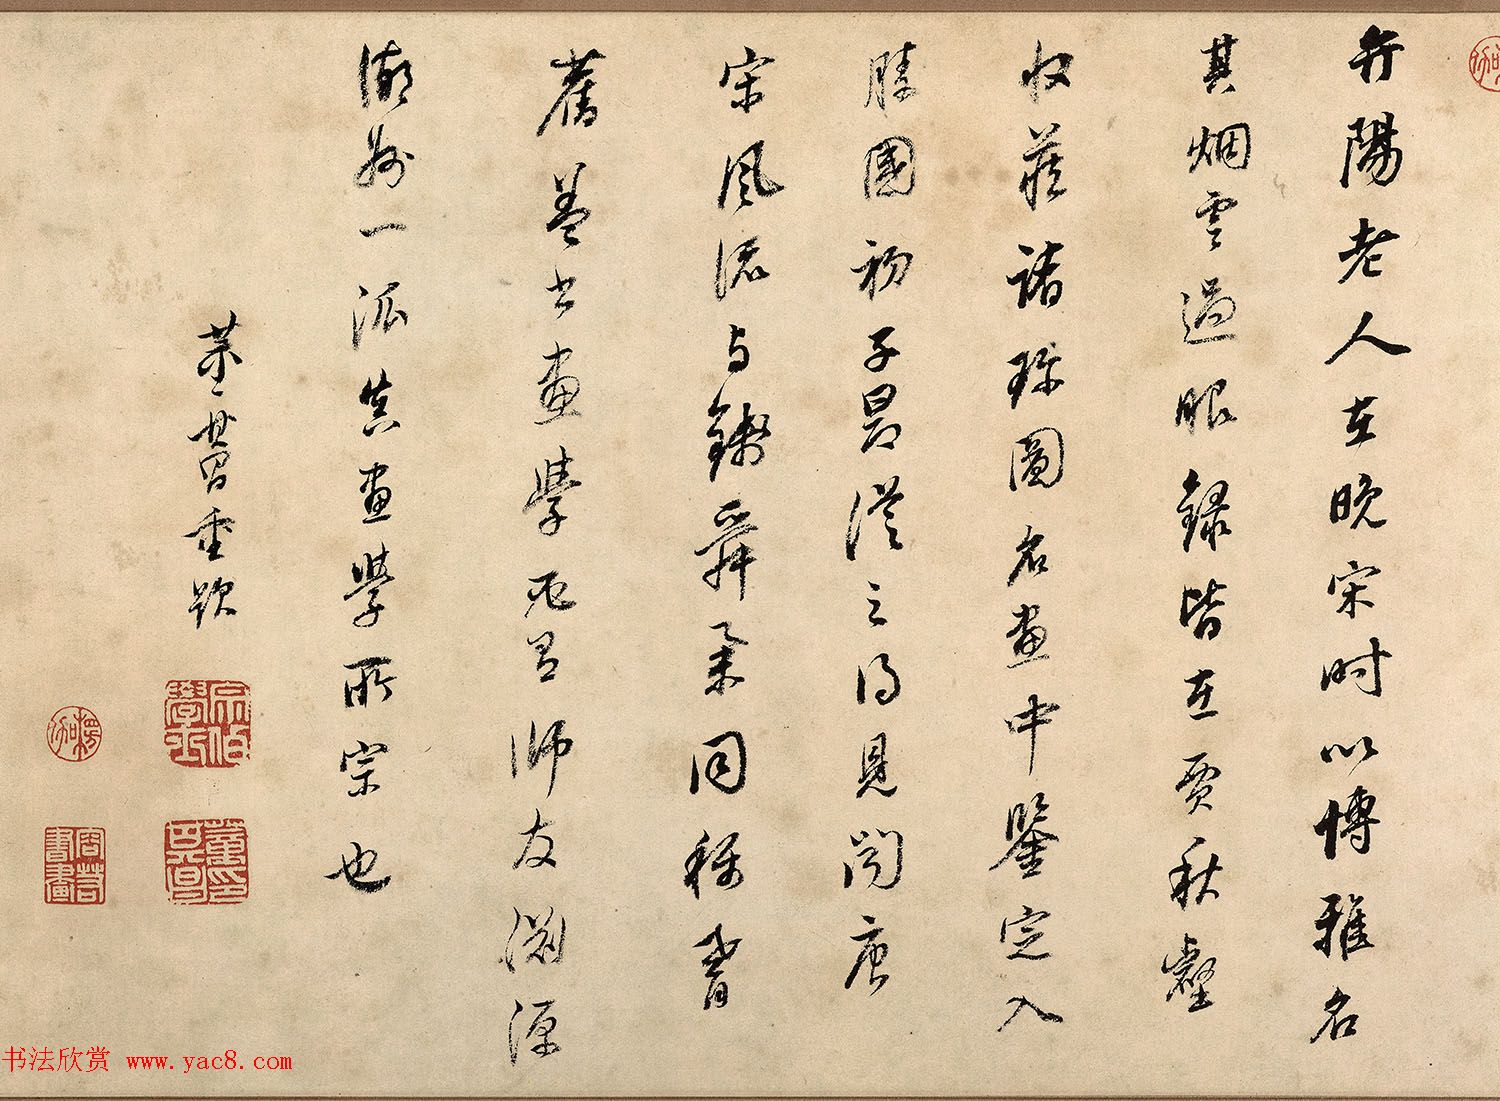 弁陽老人在晚宋時以博雅名
其烟雲過眼錄皆在賈秋壑
收藏諸珍圖名畫中鑒定入
勝國初子昂從之得見聞唐
宋風流与錢舜舉同稱耆
舊蓋書畫學必有師友淵源
湖州一派真畫學所宗也
董其昌重題
宗伯學士
楞伽
容若書畫
书法欣赏 www.yac8.com